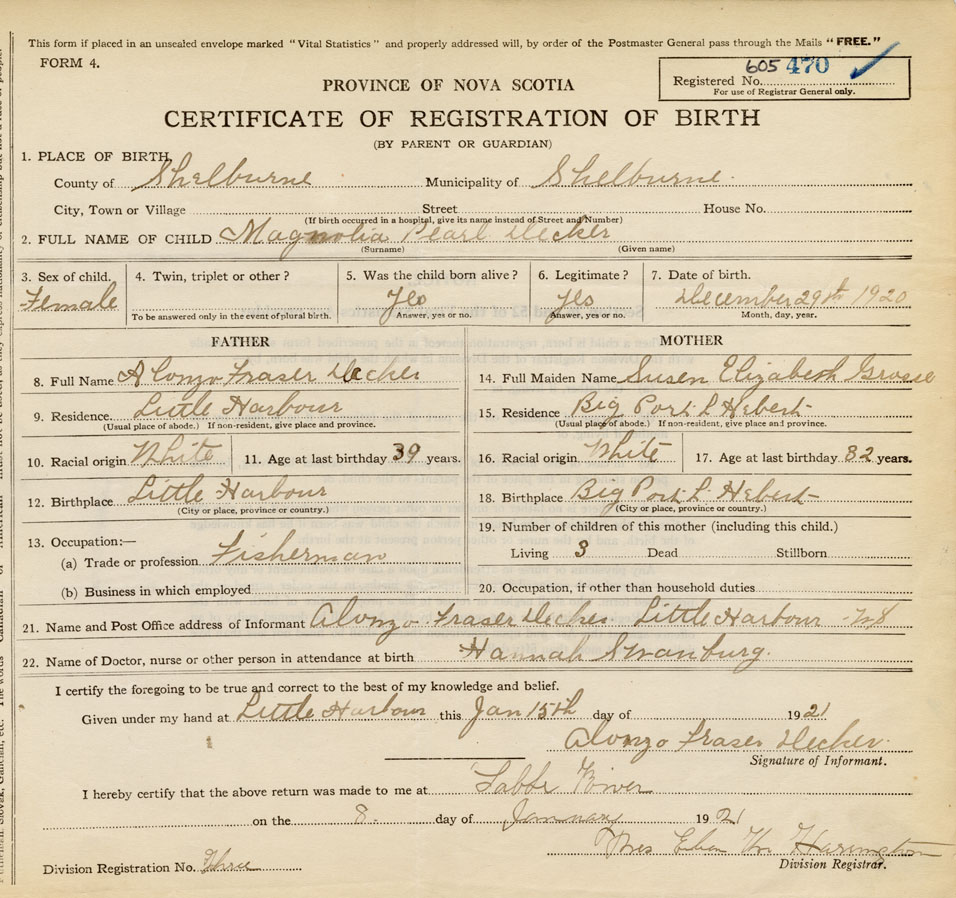 This form if placed in an unsealed envelope marked "Vital Statistics" and properly addressed will, by order of the Postmaster General pass through the Mails "FREE."
FORM 4.
605 470
Registered No.
For use of Registrar General only.
PROVINCE OF NOVA SCOTIA
CERTIFICATE OF REGISTRATION OF BIRTH
(BY PARENT OR GUARDIAN)
1. PLACE OF BIRTH
County of Shelburne Municipality of Shelburne
City, Town or Village Street House No.
(If birth occurred in a hospital, give its name instead of Street and Number)
2. FULL NAME OF CHILD Magnolia Pearl Decker
(Surname) (Given name)
3. Sex of child. 4. Twin, triplet or other? 5. Was the child born alive? 6. Legitimate? 7. Date of birth.
Female Yes Yes December 29th 1920
To be answered only in the event of plural birth. Answer, yes or no. Answer, yes or no. Month, day, year.
FATHER
8. Full Name Alonzo Fraser Decker
9. Residence. Little Harbour
(Usual place of abode.) If non-resident, give place and province.
10. Racial origin White 11. Age at last birthday 39 years.
12. Birthplace Little Harbour
(City or place, province or country.)
13. Occupation:—
(a) Trade or profession Fisherman
(b) Business in which employed
MOTHER
14. Full Maiden Name Susen Elizabeth Grosse
15. Residence Big Port L Hebert
(Usual place of abode.) If non-resident, give place and province.
16. Racial origin White 17. Age at last birthday 32 years.
18. Birthplace Big Port L Hebert
(City or place, province or country.)
19. Number of children of this mother (including this child.)
Living 3 Dead Stillborn
20. Occupation, if other than household duties
21. Name and Post Office address of Informant Alonzo Fraser Decker Little Harbour NS
22. Name of Doctor, nurse or other person in attendance at birth Hannah Swanburg.
I certify the foregoing to be true and correct to the best of my knowledge and belief.
Given under my hand at Little Harbour this Jan 15th day of 1921
Alonzo Fraser Decker
Signature of Informant.
I hereby certify that the above return was made to me at River
on the 8 day of January 1921
Mrs Harrington
Division Registrar.
Division Registration No. Three